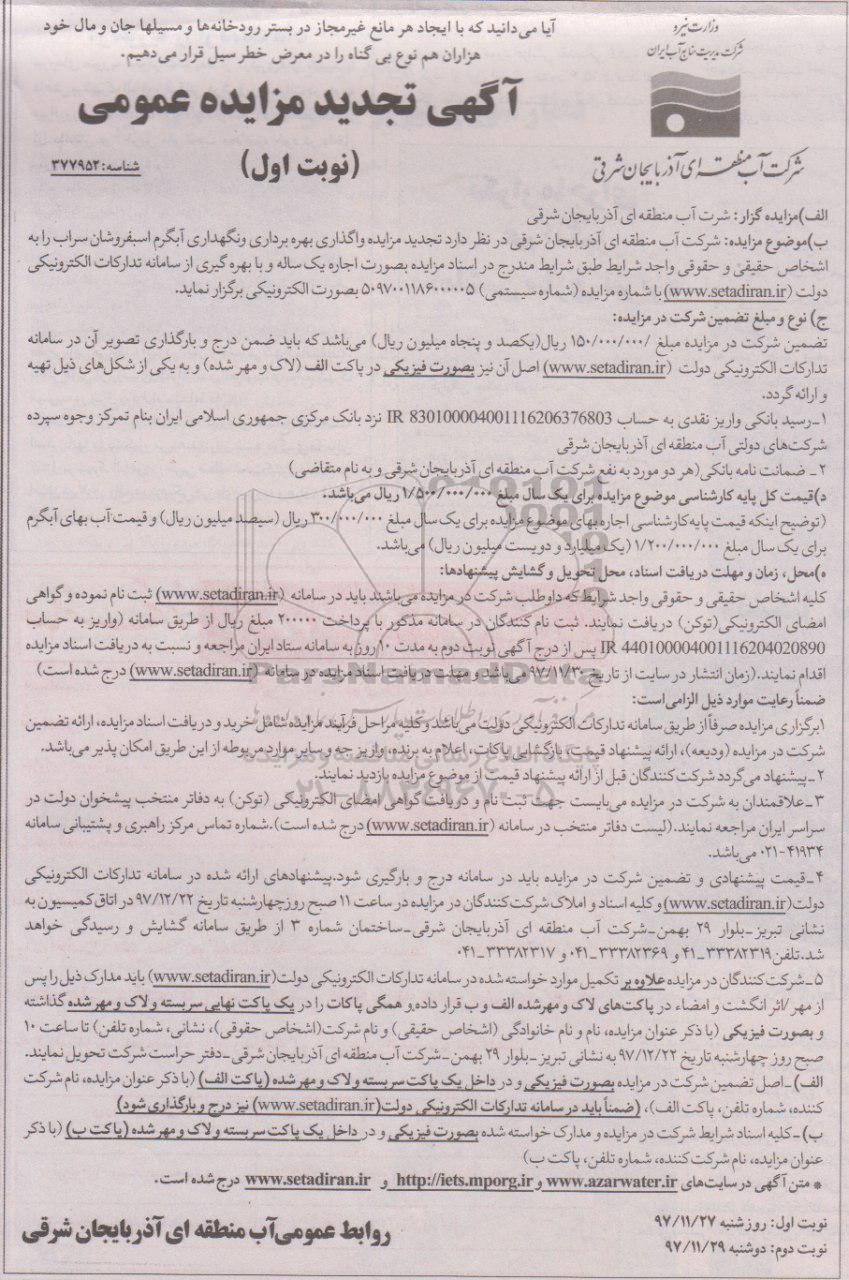 آیا می‌دانید که با ایجاد هر مانع غیرمجاز در بستر رودخانه‌ها و مسیلها جان و مال خود
هزاران هم نوع بی گناه را در معرض خطر سیل قرار می‌دهیم.
وزارت نیرو
شرکت مدیریت منابع آب ایران
شرکت آب منطقه ای آذربایجان شرقی
آگهی تجدید مزایده عمومی
(نوبت اول)
شناسه: ۳۷۷۹۵۲
الف)مزایده گزار: شرت آب منطقه ای آذربایجان شرقی
ب)موضوع مزایده: شرکت آب منطقه ای آذربایجان شرقی در نظر دارد تجدید مزایده واگذاری بهره برداری ونگهداری آبگرم اسبفروشان سراب را به
اشخاص حقیقی و حقوقی واجد شرایط طبق شرایط مندرج در اسناد مزایده بصورت اجاره یک ساله و با بهره گیری از سامانه تدارکات الکترونیکی
دولت (www.setadiran.ir) با شماره مزایده (شماره سیستمی) ۵۰۹۷۰۰۱۱۸۶۰۰۰۰۰۵ بصورت الکترونیکی برگزار نماید.
ج) نوع و مبلغ تضمین شرکت در مزایده:
تضمین شرکت در مزایده مبلغ ۱۵۰/۰۰۰/۰۰۰/ ریال(یکصد و پنجاه میلیون ریال) می‌باشد که باید ضمن درج و بارگذاری تصویر آن در سامانه
تدارکات الکترونیکی دولت (www.setadiran.ir) اصل آن نیز بصورت فیزیکی در پاکت الف (لاک و مهر شده) و به یکی از شکل‌های ذیل تهیه
و ارائه گردد.
۱ـ رسید بانکی واریز نقدی به حساب IR 830100004001116206376803 نزد بانک مرکزی جمهوری اسلامی ایران بنام تمرکز وجوه سپرده
شرکت‌های دولتی آب منطقه ای آذربایجان شرقی
۲ـ ضمانت نامه بانکی(هر دو مورد به نفع شرکت آب منطقه ای آذربایجان شرقی و به نام متقاضی)
د)قیمت کل پایه کارشناسی موضوع مزایده برای یک سال مبلغ ۱/۵۰۰/۰۰۰/۰۰۰ ریال می‌باشد.
(توضیح اینکه قیمت پایه‌کارشناسی اجاره بهای موضوع مزایده برای یک سال مبلغ ۳۰۰/۰۰۰/۰۰۰ ریال (سیصد میلیون ریال) و قیمت آب بهای آبگرم
برای یک سال مبلغ ۱/۲۰۰/۰۰۰/۰۰۰ (یک میلیارد و دویست میلیون ریال) می‌باشد.
ه)محل، زمان و مهلت دریافت اسناد، محل تحویل و گشایش پیشنهادها:
کلیه اشخاص حقیقی و حقوقی واجد شرایط که داوطلب شرکت در مزایده می‌باشند باید در سامانه (www.setadiran.ir) ثبت نام نموده و گواهی
امضای الکترونیکی(توکن) دریافت نمایند. ثبت نام کنندگان در سامانه مذکور با پرداخت ۲۰۰۰۰۰ مبلغ ریال از طریق سامانه (واریز به حساب
IR 440100004001116204020890 پس از درج آگهی نوبت دوم به مدت ۱۰ روز به سامانه ستاد ایران مراجعه و نسبت به دریافت اسناد مزایده
اقدام نمایند.(زمان انتشار در سایت از تاریخ ۹۷/۱۱/۳۰ می‌باشد و مهلت دریافت اسناد مزایده در سامانه (www.setadiran.ir) درج شده است)
ضمناً رعایت موارد ذیل الزامی است:
۱برگزاری مزایده صرفاً از طریق سامانه تدارکات الکترونیکی دولت می‌باشد و کلیه مراحل فرآیند مزایده شامل خرید و دریافت اسناد مزایده، ارائه تضمین
شرکت در مزایده (ودیعه)، ارائه پیشنهاد قیمت، بازگشایی پاکات، اعلام به برنده، واریز وجه و سایر موارد مربوطه از این طریق امکان پذیر می‌باشد.
۲ـ پیشنهاد می‌گردد شرکت کنندگان قبل از ارائه پیشنهاد قیمت از موضوع مزایده بازدید نمایند.
۳ـ علاقمندان به شرکت در مزایده می‌بایست جهت ثبت نام و دریافت گواهی امضای الکترونیکی (توکن) به دفاتر منتخب پیشخوان دولت در
سراسر ایران مراجعه نمایند.(لیست دفاتر منتخب در سامانه (www.setadiran.ir) درج شده است).شماره تماس مرکز راهبری و پشتیبانی سامانه
۰۲۱-۴۱۹۳۴ می‌باشد.
۴ـ قیمت پیشنهادی و تضمین شرکت در مزایده باید در سامانه درج و بارگیری شود.پیشنهادهای ارائه شده در سامانه تدارکات الکترونیکی
دولت(www.setadiran.ir) و کلیه اسناد و املاک شرکت کنندگان در مزایده در ساعت ۱۱ صبح روزچهارشنبه تاریخ ۹۷/۱۲/۲۲ در اتاق کمیسیون به
نشانی تبریز-بلوار ۲۹ بهمن-شرکت آب منطقه ای آذربایجان شرقی-ساختمان شماره ۳ از طریق سامانه گشایش و رسیدگی خواهد
شد.تلفن۳۳۳۸۲۳۱۹ـ۴۱ و ۳۳۳۸۲۳۶۹ـ۰۴۱ و ۳۳۳۸۲۳۱۷ـ۰۴۱
۵ـ شرکت کنندگان در مزایده علاوه بر تکمیل موارد خواسته شده در سامانه تدارکات الکترونیکی دولت(www.setadiran.ir) باید مدارک ذیل را پس
از مهر/اثر انگشت و امضاء در پاکت‌های لاک و مهرشده الف و ب قرار داده،و همگی پاکات را در یک پاکت نهایی سربسته و لاک و مهر شده گذاشته
و بصورت فیزیکی (با ذکر عنوان مزایده، نام و نام خانوادگی (اشخاص حقیقی) و نام شرکت(اشخاص حقوقی)، نشانی، شماره تلفن) تا ساعت ۱۰
صبح روز چهارشنبه تاریخ ۹۷/۱۲/۲۲ به نشانی تبریز -بلوار ۲۹ بهمن-شرکت آب منطقه ای آذربایجان شرقی-دفتر حراست شرکت تحویل نمایند.
الف)-اصل تضمین شرکت در مزایده بصورت فیزیکی و در داخل یک پاکت سربسته و لاک و مهر شده (پاکت الف) (با ذکر عنوان مزایده، نام شرکت
کننده، شماره تلفن، پاکت الف)، (ضمناً باید در سامانه تدارکات الکترونیکی دولت(www.setadiran.ir) نیز درج و بارگذاری شود)
ب)-کلیه اسناد شرایط شرکت در مزایده و مدارک خواسته شده بصورت فیزیکی و در داخل یک پاکت سربسته و لاک و مهر شده (پاکت ب) (با ذکر
عنوان مزایده، نام شرکت کننده، شماره تلفن، پاکت ب)
* متن آگهی در سایت‌های www.azarwater.ir و http://iets.mporg.ir و www.setadiran.ir درج شده است.
نوبت اول: روز شنبه ۹۷/۱۱/۲۷
نوبت دوم: دوشنبه ۹۷/۱۱/۲۹
روابط عمومی آب منطقه ای آذربایجان شرقی
ParsNamadData
پایگاه اطلاع رسانی مناقصه و مزایده
۰۲۱-۸۸۳۴۹۶۷۰-۵